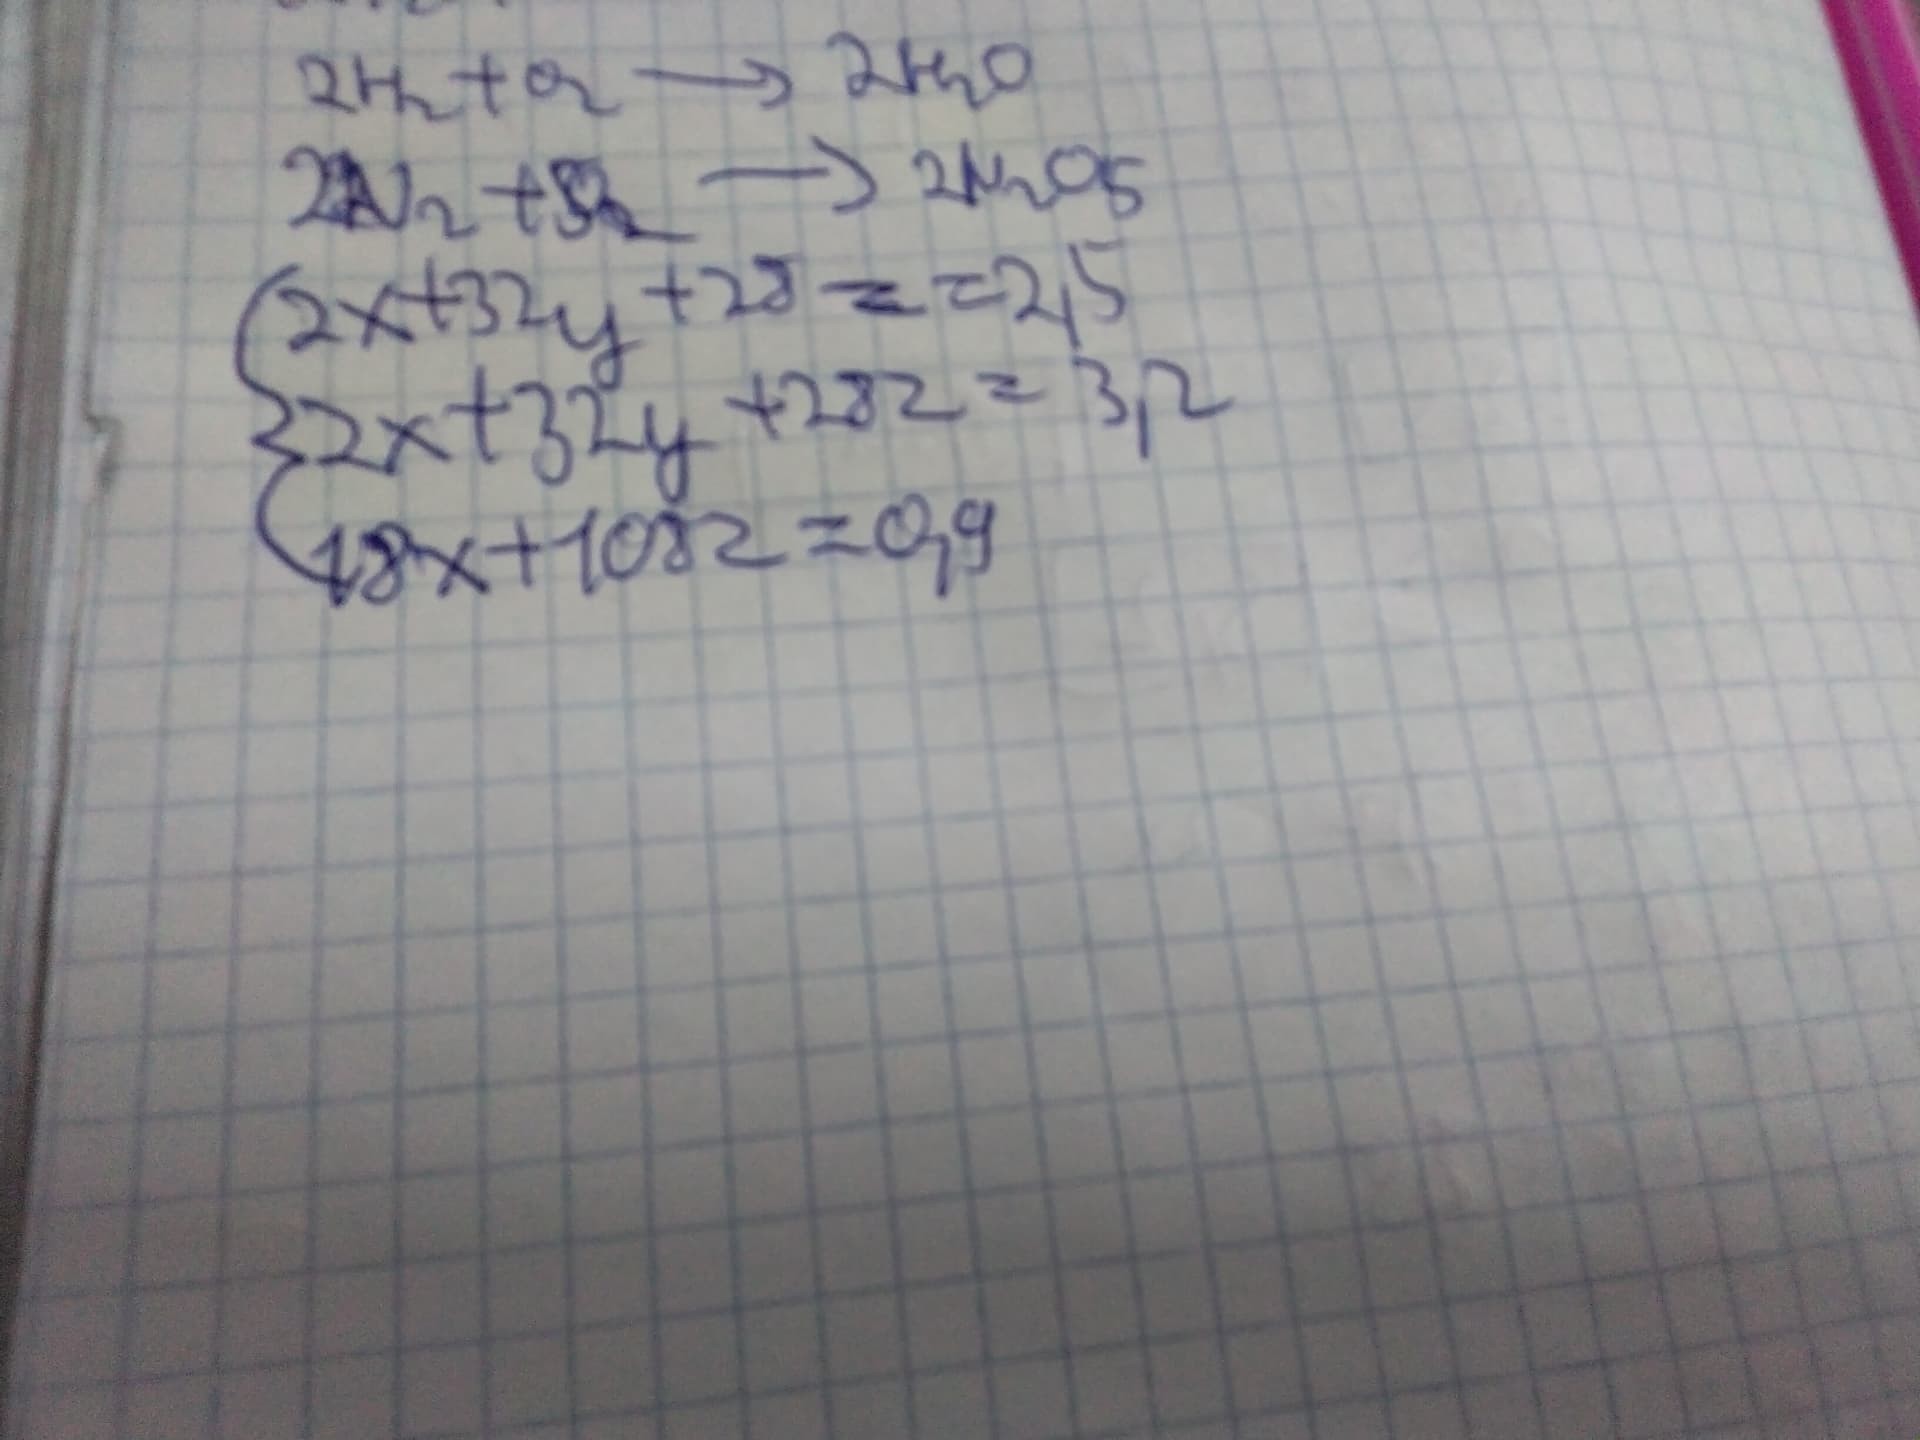 2H₂ + O₂ → 2H₂O
2N₂ + 5O₂ → 2N₂O5
2x+32y+28 = =2,5
2x+32y+28z = 3,2
18x+108z=0,9